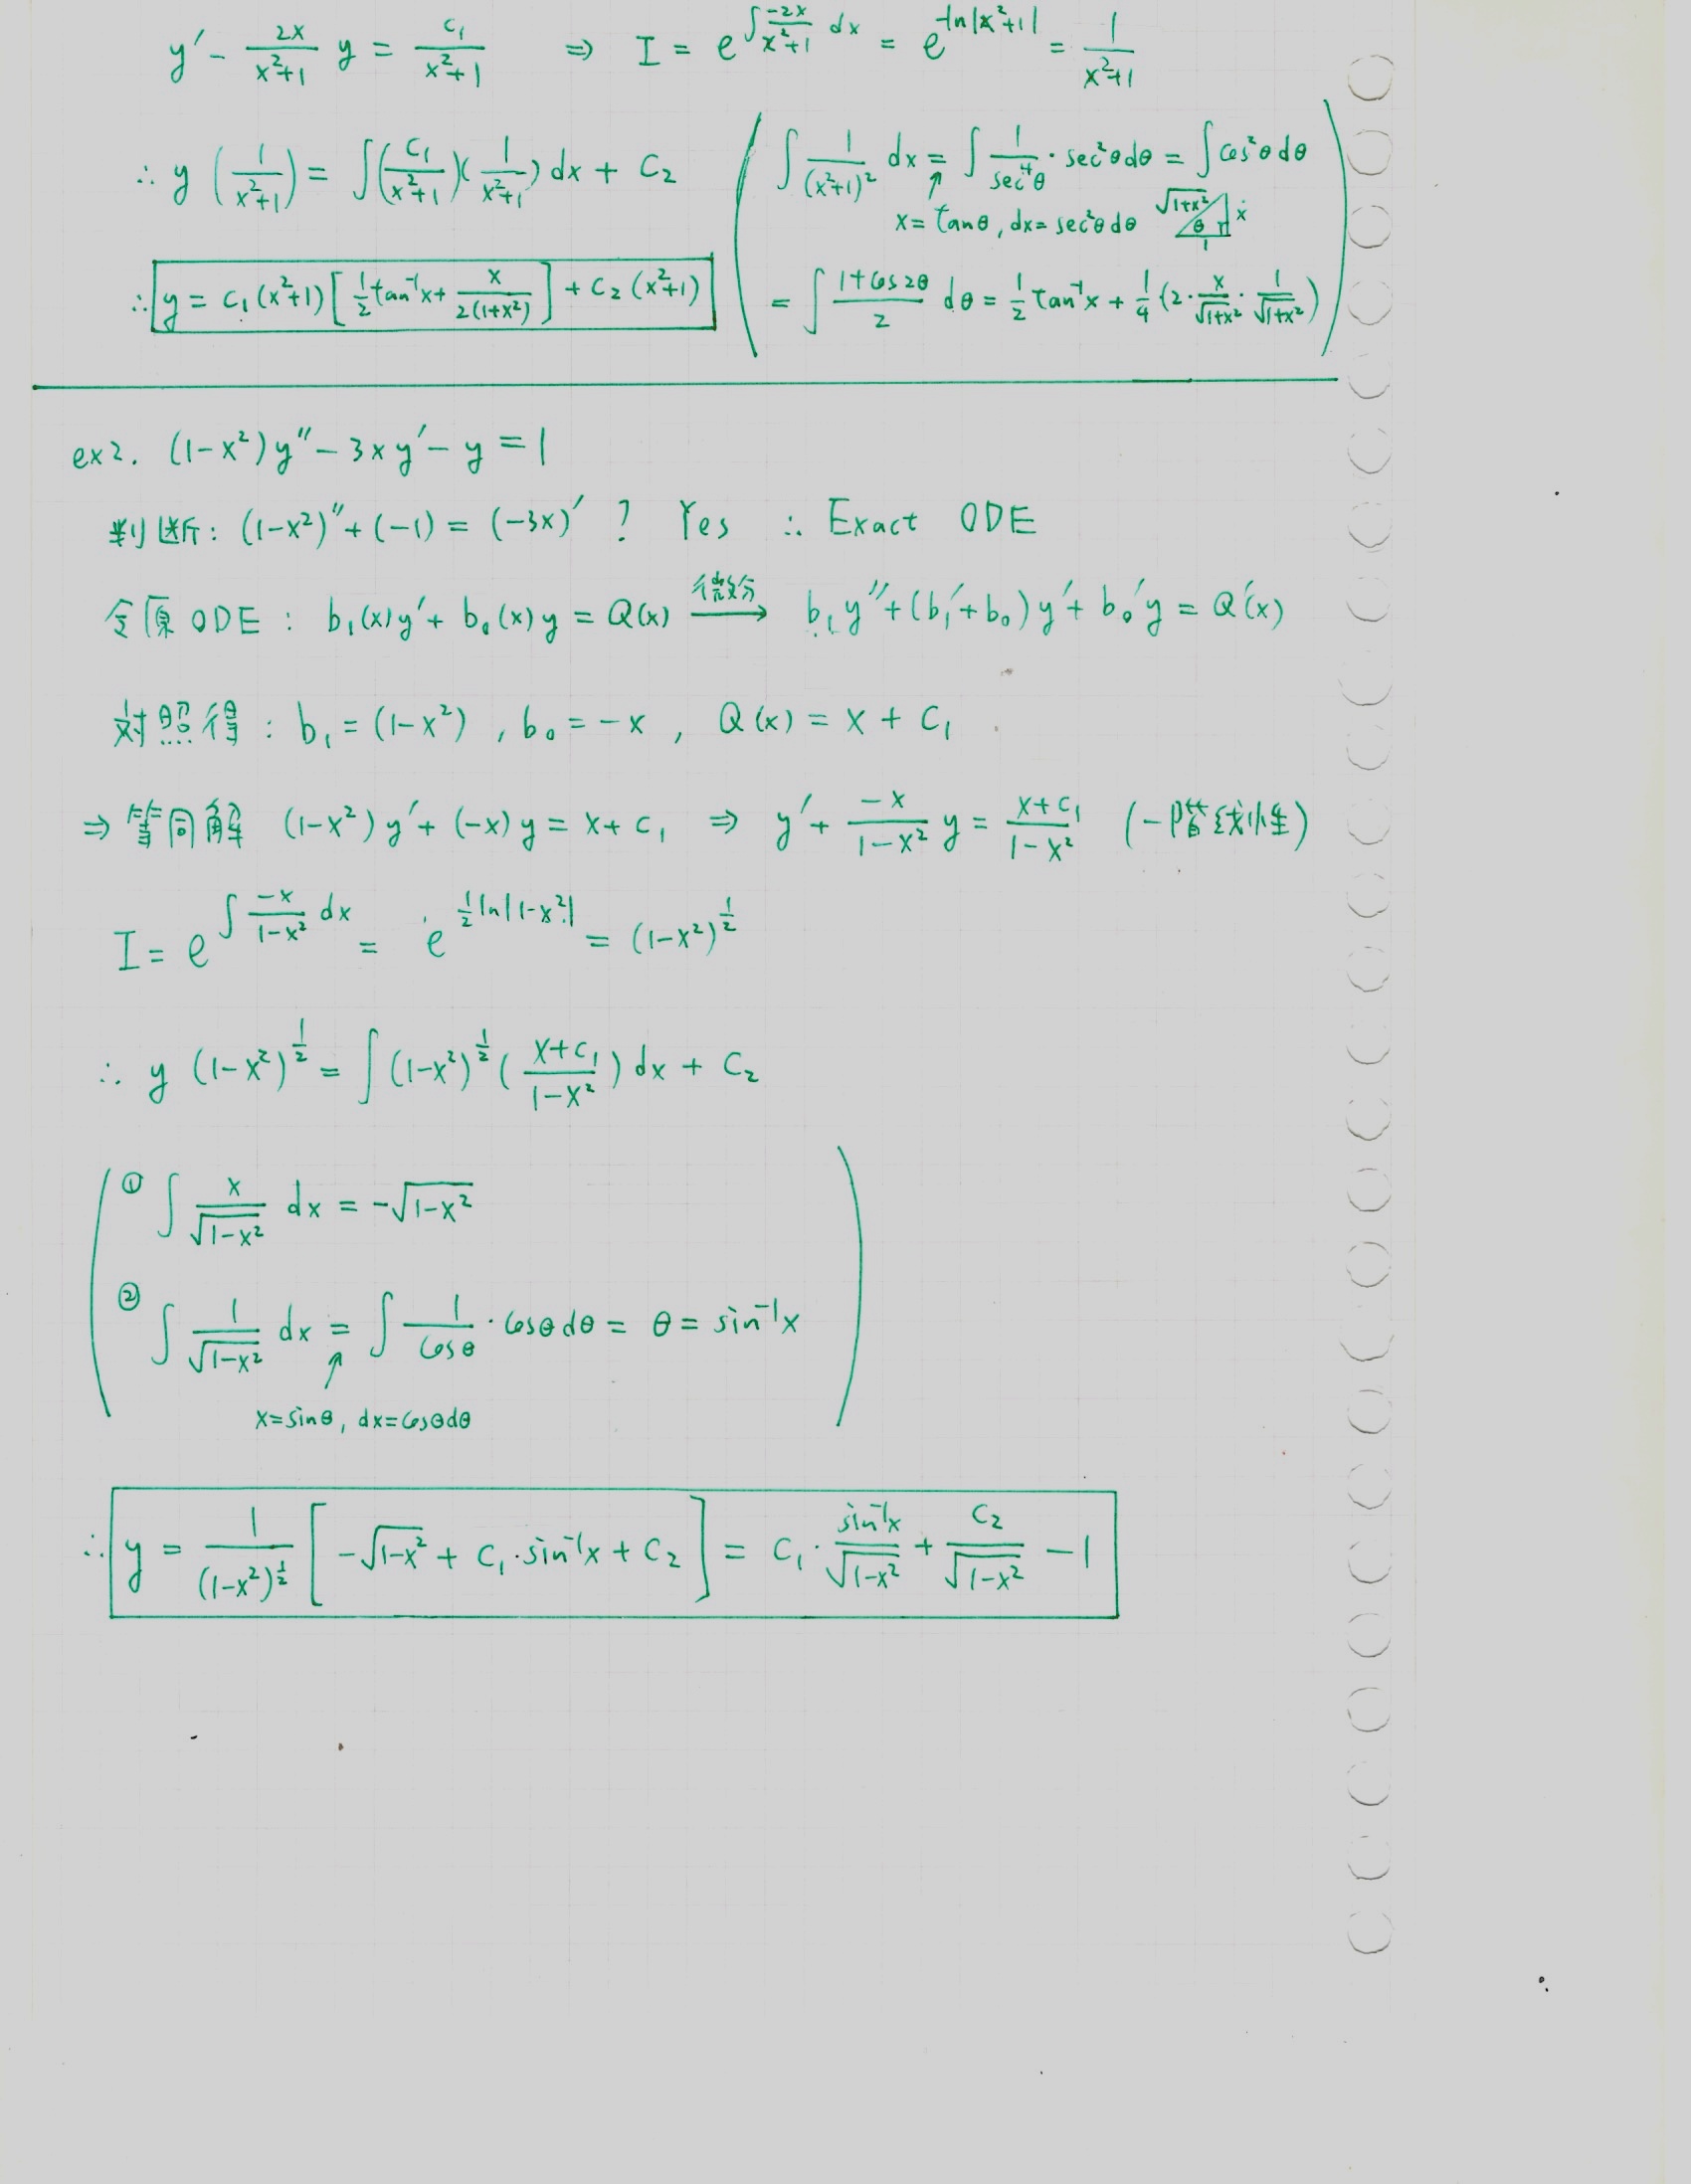 y′ − 2x/(x²+1) y = c₁/(x²+1) ⇒ I = e^{∫ −2x/(x²+1) dx} = e^{−ln|x²+1|} = 1/(x²+1)
∴ y (1/(x²+1)) = ∫(c₁/(x²+1))(1/(x²+1)) dx + C₂
∴ y = C₁(x²+1)[½ tan⁻¹x + x/(2(1+x²))] + C₂(x²+1)
∫ 1/(x²+1)² dx = ∫ 1/sec⁴θ · sec²θdθ = ∫cos²θdθ
↑
x = tanθ, dx = sec²θdθ √(1+x²) θ x 1
= ∫ (1+cos2θ)/2 dθ = ½ tan⁻¹x + ¼(2·x/√(1+x²)·1/√(1+x²))
ex2. (1−x²)y″ − 3xy′ − y = 1
判断: (1−x²)″ + (−1) = (−3x)′ ? Yes ∴ Exact ODE
令原ODE : b₁(x)y′ + b₀(x)y = Q(x) —微分→ b₁y″ + (b₁′+b₀)y′ + b₀′y = Q′(x)
对照得 : b₁ = (1−x²), b₀ = −x, Q(x) = x + C₁
⇒ 等同解 (1−x²)y′ + (−x)y = x + c₁ ⇒ y′ + −x/(1−x²) y = (x+c₁)/(1−x²) (一階线性)
I = e^{∫ −x/(1−x²) dx} = e^{½ln|1−x²|} = (1−x²)^{½}
∴ y (1−x²)^{½} = ∫(1−x²)^{½}((x+c₁)/(1−x²)) dx + C₂
① ∫ x/√(1−x²) dx = −√(1−x²)
② ∫ 1/√(1−x²) dx = ∫ 1/cosθ · cosθdθ = θ = sin⁻¹x
↑
x=sinθ, dx=cosθdθ
∴ y = 1/(1−x²)^{½} [−√(1−x²) + C₁·sin⁻¹x + C₂] = C₁· sin⁻¹x/√(1−x²) + C₂/√(1−x²) − 1